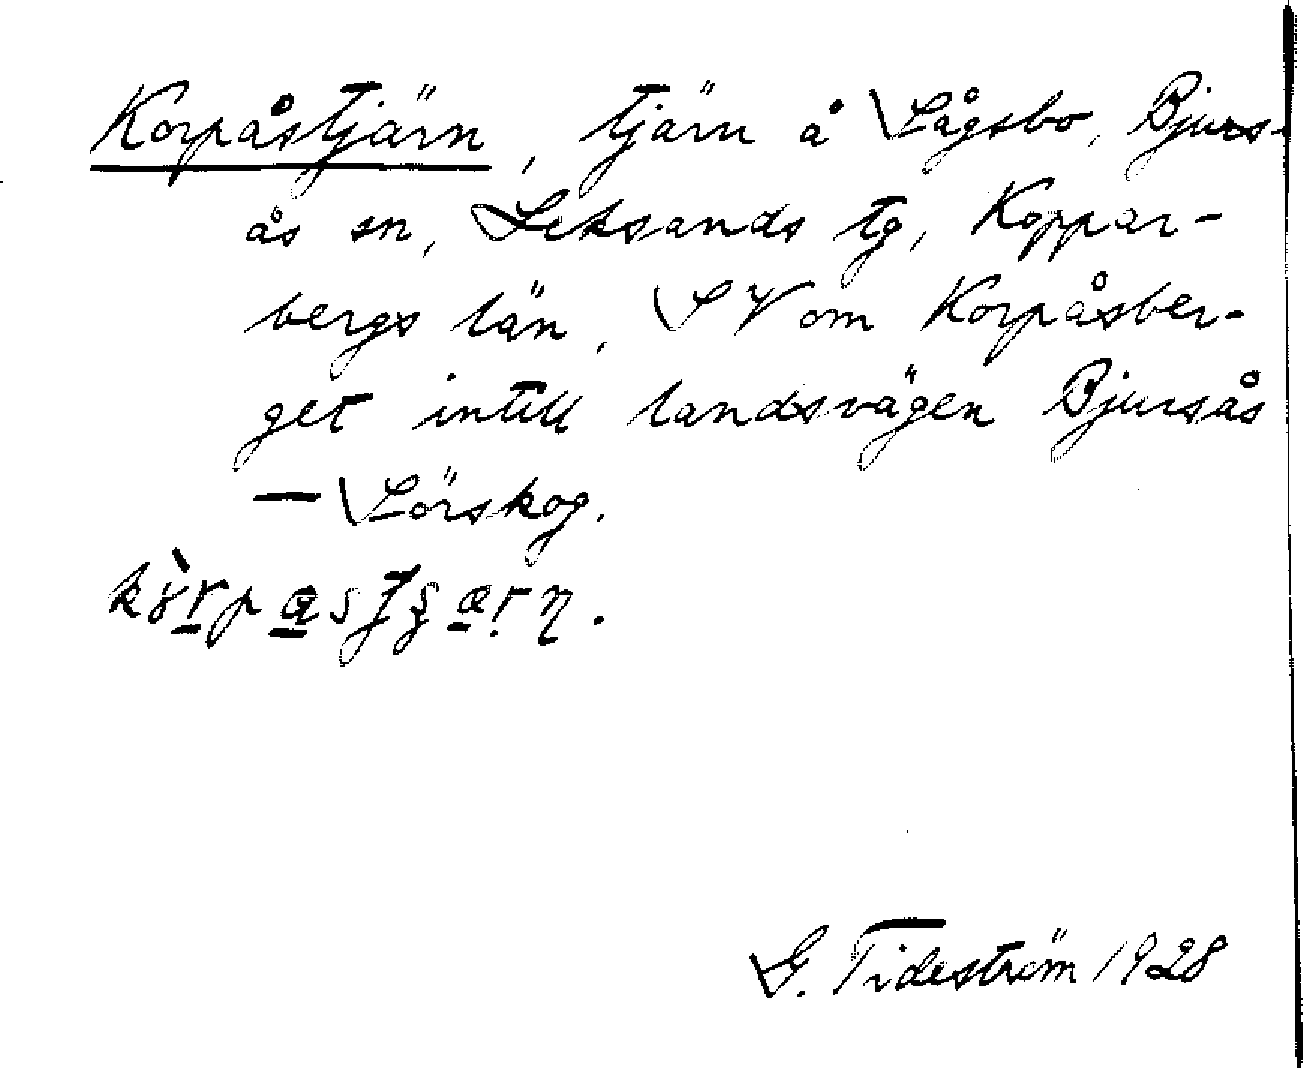 Korpåstjärn, tjärn å Lågsbo, Bjurs-
ås sn, Leksands tg, Koppar-
bergs län, SV om Korpåsber-
get intill landsvägen Bjursås
— Lörskog.
G. Tideström 1928